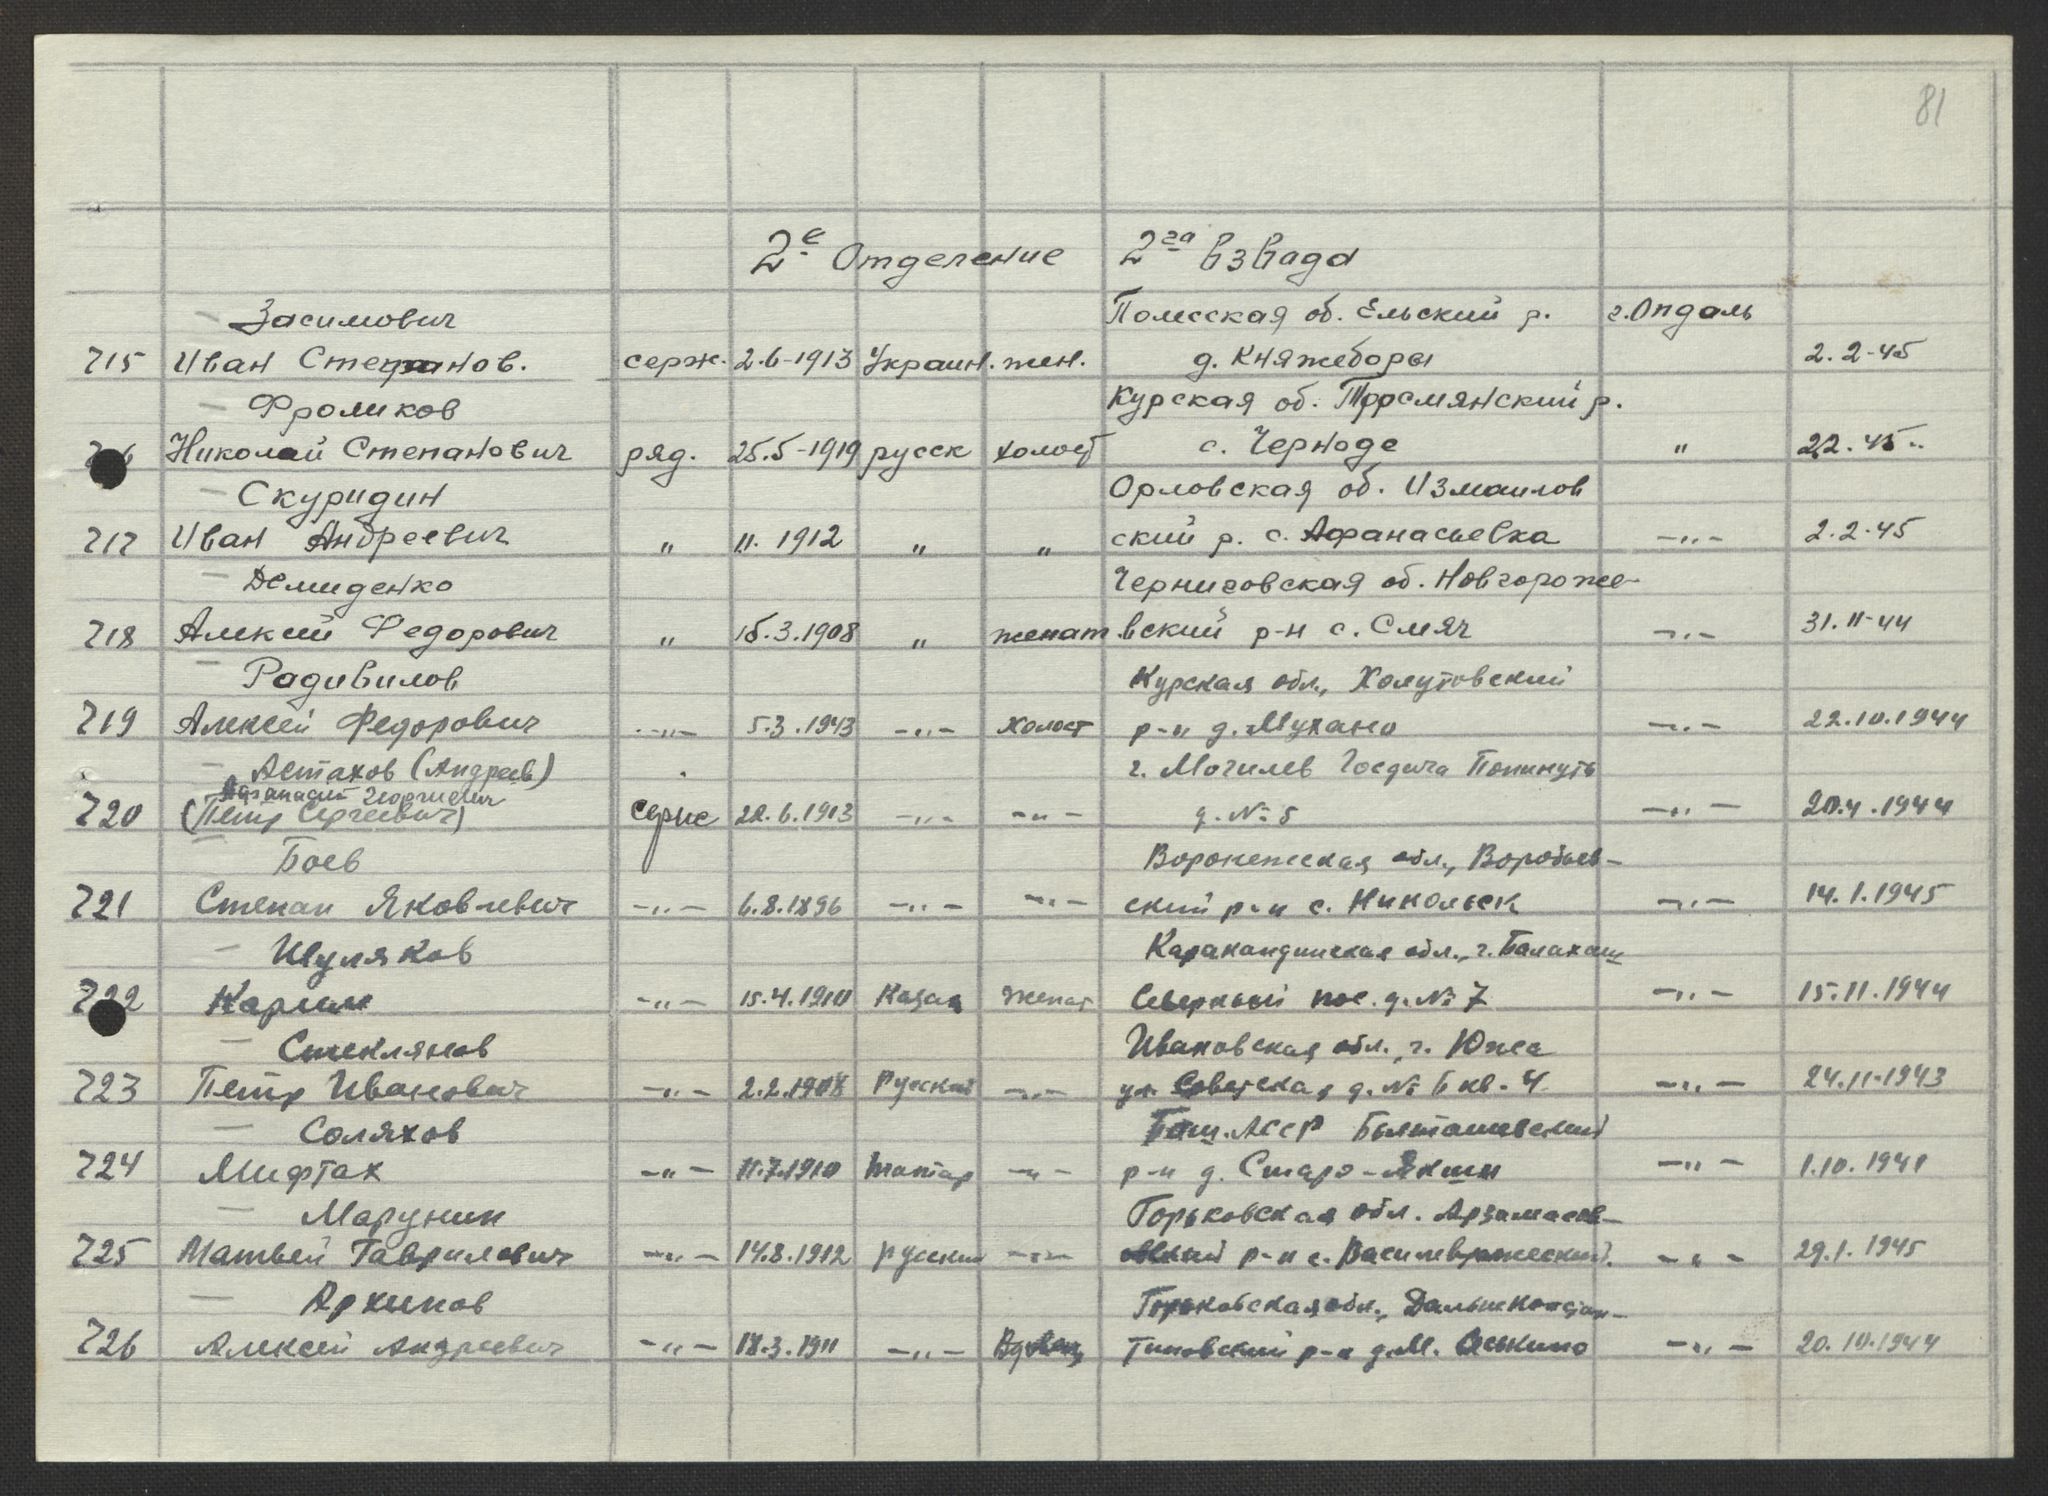 81
2е Отделение 2га взвада
Засимович Полесская об. Ельский р. г. Опдаль
715 Иван Степанов. серж. 2.6-1913 Украин. жен. д. Княжеборы 2.2-45
Фроликов Курская об. р.
Николай Степанович ряд. 25.5-1919 русск холост с. Черноде " 22.45..
Скуридин Орловская об. Измаилов
717 Иван Андреевич " 11. 1912 " " ский р. с. Афанасьевка -"- 2.2-45
Демиденко Черниговская об. Новгороже-
718 Алексей Федорович " 15.3.1908 " женат вский р-н с. Смяч -"- 31.11-44
Радивилов Курская обл., Хомутовский
719 Алексей Федорович -"- 5.3.1943 -"- холост р-н д. Мухано -"- 22.10.1944
Астахов (Андреев) г. Могилев
Афанасий Георгиевич
720 (Петр Сергеевич) серже 22.6.1913 -"- -"- д. № 5 -"- 20.4.1944
Боев Воронежская обл., Воробьев-
721 Степан Яковлевич -"- 6.8.1896 -"- -"- ский р-н с. Никольск -"- 14.1.1945
Шуляков Каракандинская обл., г. Балахаш
722 Карим -"- 15.4.1910 Казах женат Северный пос. д. № 7 -"- 15.11.1944
Стеклянов Ивановская обл., г. Южа
723 Петр Иванович -"- 2.2.1908 Русский -"- ул. Советская д. № 6 кв. 4 -"- 24.11.1943
Соляхов Баш. АССР
724 Мифтах -"- 11.7.1910 татар -"- р-н д. Старо-Якши -"- 1.10.1941
Марунин Горьковская обл. Арзамасов-
725 Матвей Гаврилович -"- 14.8.1912 русский -"- р-н с. -"- 29.1.1945
Архипов Горьковская обл., Дальнеконстан-
726 Алексей Андреевич -"- 18.3.1911 -"- Вдовец тиновский р-н д. М. Оськино -"- 20.10.1944